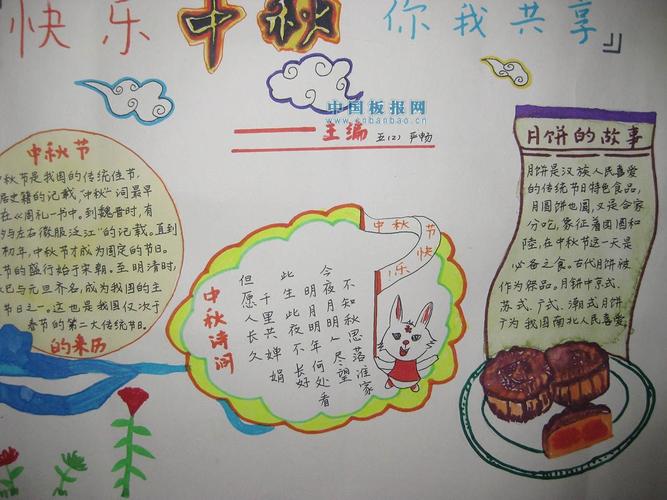 快乐中秋 你我共享』
中国板报网
www.cnbanbao.cn
主编 五(2) 严畅
中秋节
中秋节是我国的传统佳节,
据史籍的记载,“中秋”一词最早
在《周礼一书中.到魏晋时,有
夕与左右微服泛江”的记载.直到
初年,中秋节才成为固定的节日.
节的盛行始于宋朝.至明清时,
已与元旦齐名,成为我国的主
节日之一.这也是我国仅次于
春节的第二大传统节日.
的来历
中秋节快乐
不知秋思落淮家
今夜月明人尽望
明月明年何处看
此生此夜不长好
千里共婵娟
但愿人长久
中秋诗词
月饼的故事
月饼是汉族人民喜爱
的传统节日特色食品,
月圆饼也圆,又是合家
分吃,象征着团圆和
睦,在中秋节这一天是
必备之食.古代月饼被
作为祭品.月饼中京式、
苏式、广式、潮式月饼
广为我国南北人民喜爱